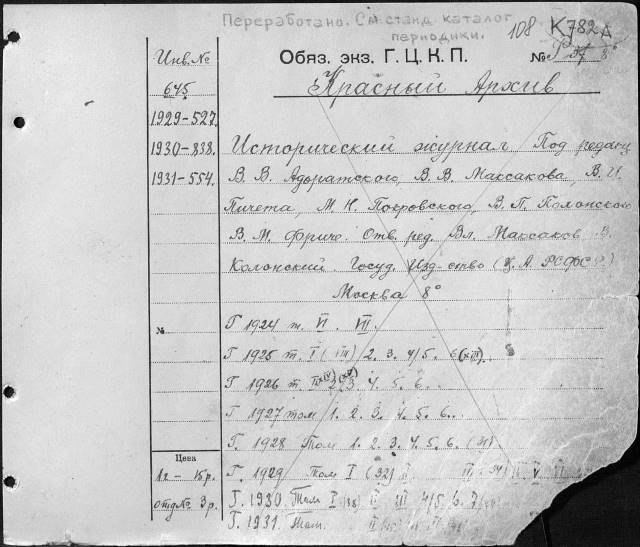 Переработано. См. станд. каталог
периодики.
108 К782А
Обяз. экз. Г. Ц. К. П. № 8°
Красный Архив
Инв. №
645
1929-527.
1930-838.
1931-554.
Исторический журнал Под редакц
В. В. Адоратского, В. В. Максакова, В. И.
Пичета, М. Н. Покровского, В. П. Полонского
В. М. Фриче. Отв. ред. Вл. Максаков В.
Полонский. Госуд. Изд-ство (Ц. А РСФСР)
Москва 8°
№
Г 1924 т. VI. VII.
Г 1925 т. I (VIII) 2. 3. 4/5. 6 (XIII)
Г 1926 т. (XIV) 2 (XV) 3. 4. 5. 6.
Г 1927 том 1. 2. 3. 4. 5. 6.
Г. 1928 Том 1. 2. 3. 4. 5. 6. (31)
Цена
1г - 15р.
отд№ 3р.
Г. 1929 Том I (32) II III 34) IV V VI
Г. 1930. Том I (38) II III 4/5 6. 7
Г. 1931. Том. II